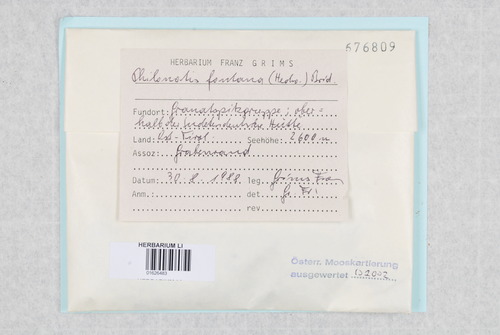 676809
HERBARIUM FRANZ GRIMS
Philonotis fontana (Hedw.) Brid.
Fundort: Granatspitzgruppe; ober-
halb der Sudetendeutschen Hütte
Land: Ost-Tirol Seehöhe: 2600 m
Assoz: Grabenrand
Datum: 30. 8. 1988 leg. Grims Franz
Anm. det. Gr. Fr.
rev.
HERBARIUM LI
Österr. Mooskartierung
ausgewertet